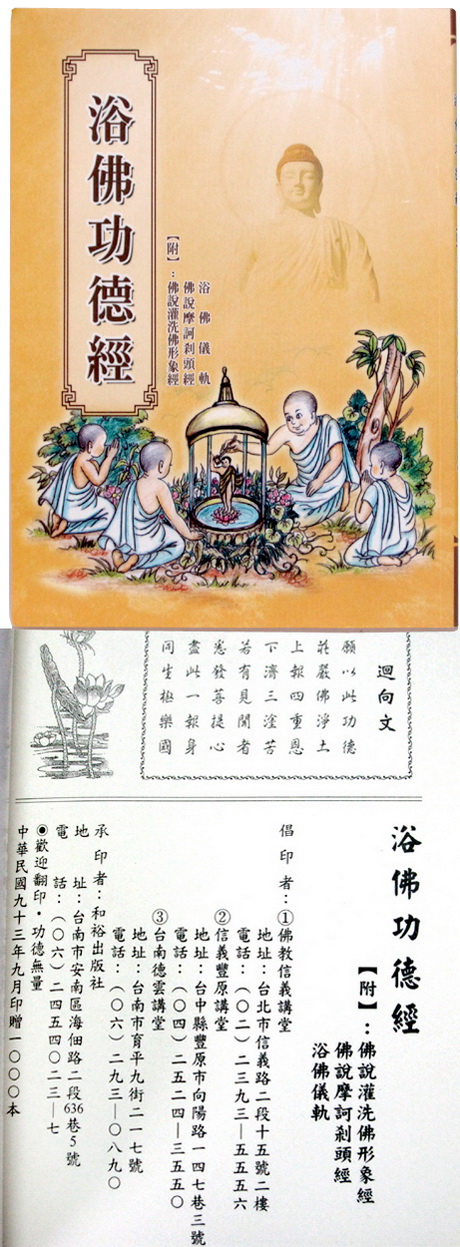 浴佛功德經
【附】：佛說灌洗佛形象經
佛說摩訶剎頭經
浴佛儀軌
迴向文
願以此功德
莊嚴佛淨土
上報四重恩
下濟三塗苦
若有見聞者
悉發菩提心
盡此一報身
同生極樂國
浴佛功德經
【附】：佛說灌洗佛形象經
佛說摩訶剎頭經
浴佛儀軌
倡印者：①佛教信義講堂
地址：台北市信義路二段十五號二樓
電話：（０二）二三九三—五五五六
②信義豐原講堂
地址：台中縣豐原市向陽路一四七巷三號
電話：（０四）二五二四—三五五０
③台南德雲講堂
地址：台南市育平九街二一七號
電話：（０六）二九三—０八九０
承印者：和裕出版社
地址：台南市安南區海佃路二段636巷5號
電話：（０六）二四五四０二三—七
◉歡迎翻印．功德無量
中華民國九十三年九月印贈一０００本